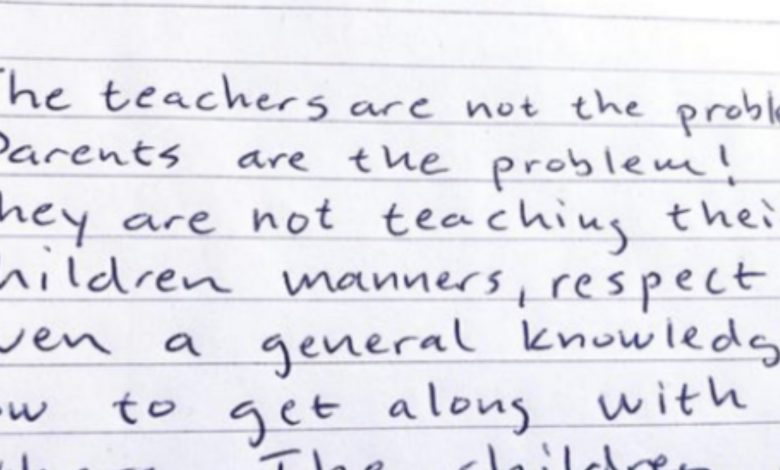 The teachers are not the probl
Parents are the problem!
hey are not teaching thei
hildren manners, respect
ven a general knowledg
ow to get along with
The children